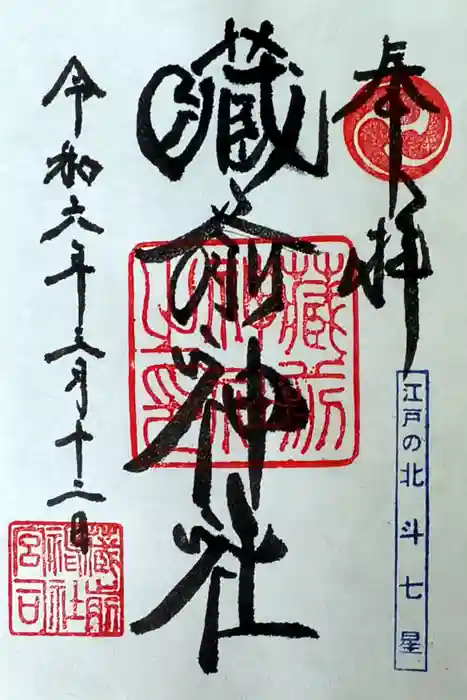 奉拝
江戸の北斗七星
蔵前神社
蔵前神社之印
令和六年三月十二日
蔵前神社宮司